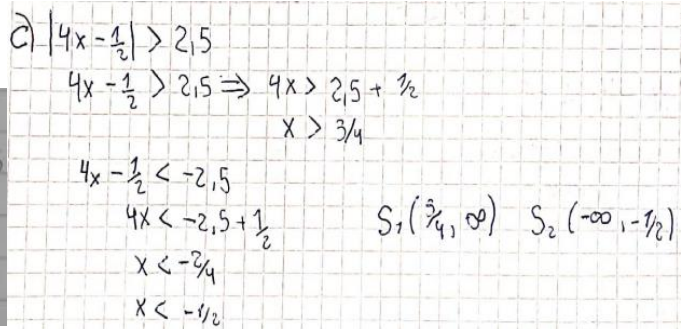 c) |4x - 1/2| > 2,5
4x - 1/2 > 2,5 ⇒ 4x > 2,5 + 1/2
x > 3/4
4x - 1/2 < -2,5
4x < -2,5 + 1/2
x < -2/4
x < -1/2
S₁ (3/4, ∞) S₂ (-∞, -1/2)